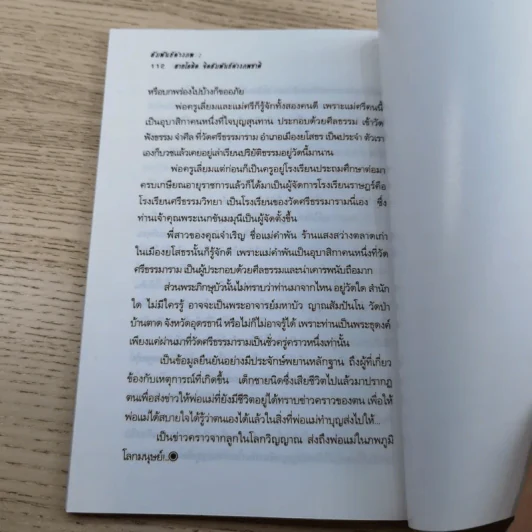 สัมพันธ์ต่างภพ :
112 สายโลหิต จิตสัมพันธ์ต่างภพชาติ
หรือบกพร่องไปบ้างก็ขออภัย
พ่อครูเลี่ยมและแม่ศรีก็รู้จักทั้งสองคนดี เพราะแม่ศรีคนนี้
เป็นอุบาสิกาคนหนึ่งที่ใจบุญสุนทาน ประกอบด้วยศีลธรรม เข้าวัด
ฟังธรรม จำศีล ที่วัดศรีธรรมาราม อำเภอเมืองยโสธร เป็นประจำ ตัวเรา
เองก็บวชแล้วเคยอยู่เล่าเรียนปริยัติธรรมอยู่วัดนี้มานาน
พ่อครูเลี่ยมแต่ก่อนก็เป็นครูอยู่โรงเรียนประถมศึกษาต่อมา
ครบเกษียณอายุราชการแล้วก็ได้มาเป็นผู้จัดการโรงเรียนราษฎร์คือ
โรงเรียนศรีธรรมวิทยา เป็นโรงเรียนของวัดศรีธรรมารามนี่เอง ซึ่ง
ท่านเจ้าคุณพระเนกขัมมมุนีเป็นผู้จัดตั้งขึ้น
พี่สาวของคุณจำเริญ ชื่อแม่คำพัน ร้านแสงสว่างตลาดเก่า
ในเมืองยโสธรนั้นก็รู้จักดี เพราะแม่คำพันเป็นอุบาสิกาคนหนึ่งที่วัด
ศรีธรรมาราม เป็นผู้ประกอบด้วยศีลธรรมและน่าเคารพนับถือมาก
ส่วนพระภิกษุบัวนั้นไม่ทราบว่าท่านมาจากไหน อยู่วัดใด สำนัก
ใด ไม่มีใครรู้ อาจจะเป็นพระอาจารย์มหาบัว ญาณสัมปันโน วัดป่า
บ้านตาด จังหวัดอุดรธานี หรือไม่ก็ไม่อาจรู้ได้ เพราะท่านเป็นพระธุดงค์
เพียงแต่ผ่านมาที่วัดศรีธรรมารามเป็นชั่วครู่คราวหนึ่งเท่านั้น
เป็นข้อมูลยืนยันอย่างมีประจักษ์พยานหลักฐาน ถึงผู้ที่เกี่ยว
ข้องกับเหตุการณ์ที่เกิดขึ้น เด็กชายนิดซึ่งเสียชีวิตไปแล้วมาปรากฏ
ตนเพื่อส่งข่าวให้พ่อแม่ที่ยังมีชีวิตอยู่ได้ทราบข่าวคราวของตน เพื่อให้
พ่อแม่ได้สบายใจได้รู้ว่าตนเองได้แล้วในสิ่งที่พ่อแม่ทำบุญส่งไปให้...
เป็นข่าวคราวจากลูกในโลกวิญญาณ ส่งถึงพ่อแม่ในภพภูมิ
โลกมนุษย์!..◉